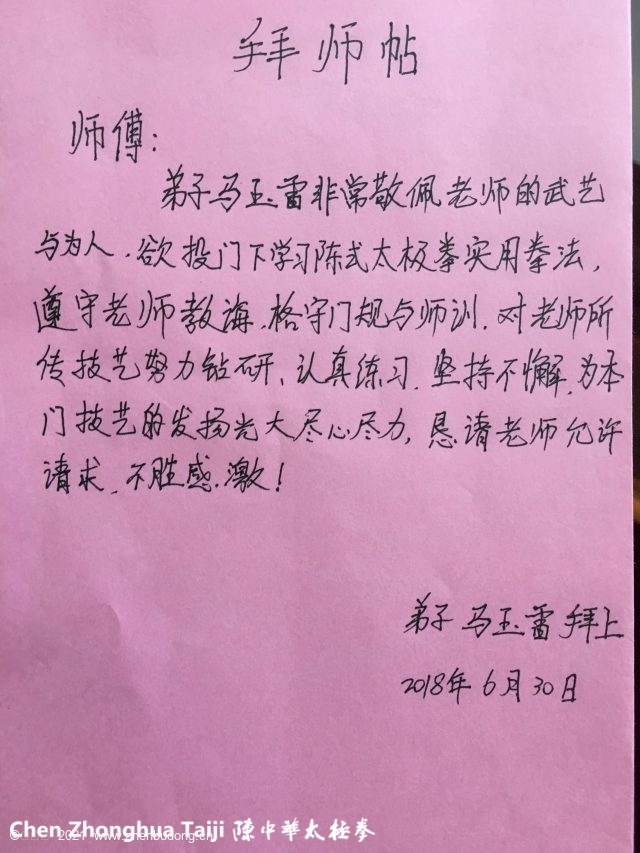 拜师帖
师傅：
弟子马玉雷非常敬佩老师的武艺
与为人，欲投门下学习陈式太极拳实用拳法，
遵守老师教海，格守门规与师训，对老师所
传技艺努力钻研、认真练习，坚持不懈，为本
门技艺的发扬光大尽心尽力，恳请老师允许
请求，不胜感激！
弟子 马玉雷 拜上
2018年6月30日
© 2021 www.zhenbudong.cn
Chen Zhonghua Taiji 陳中華太極拳